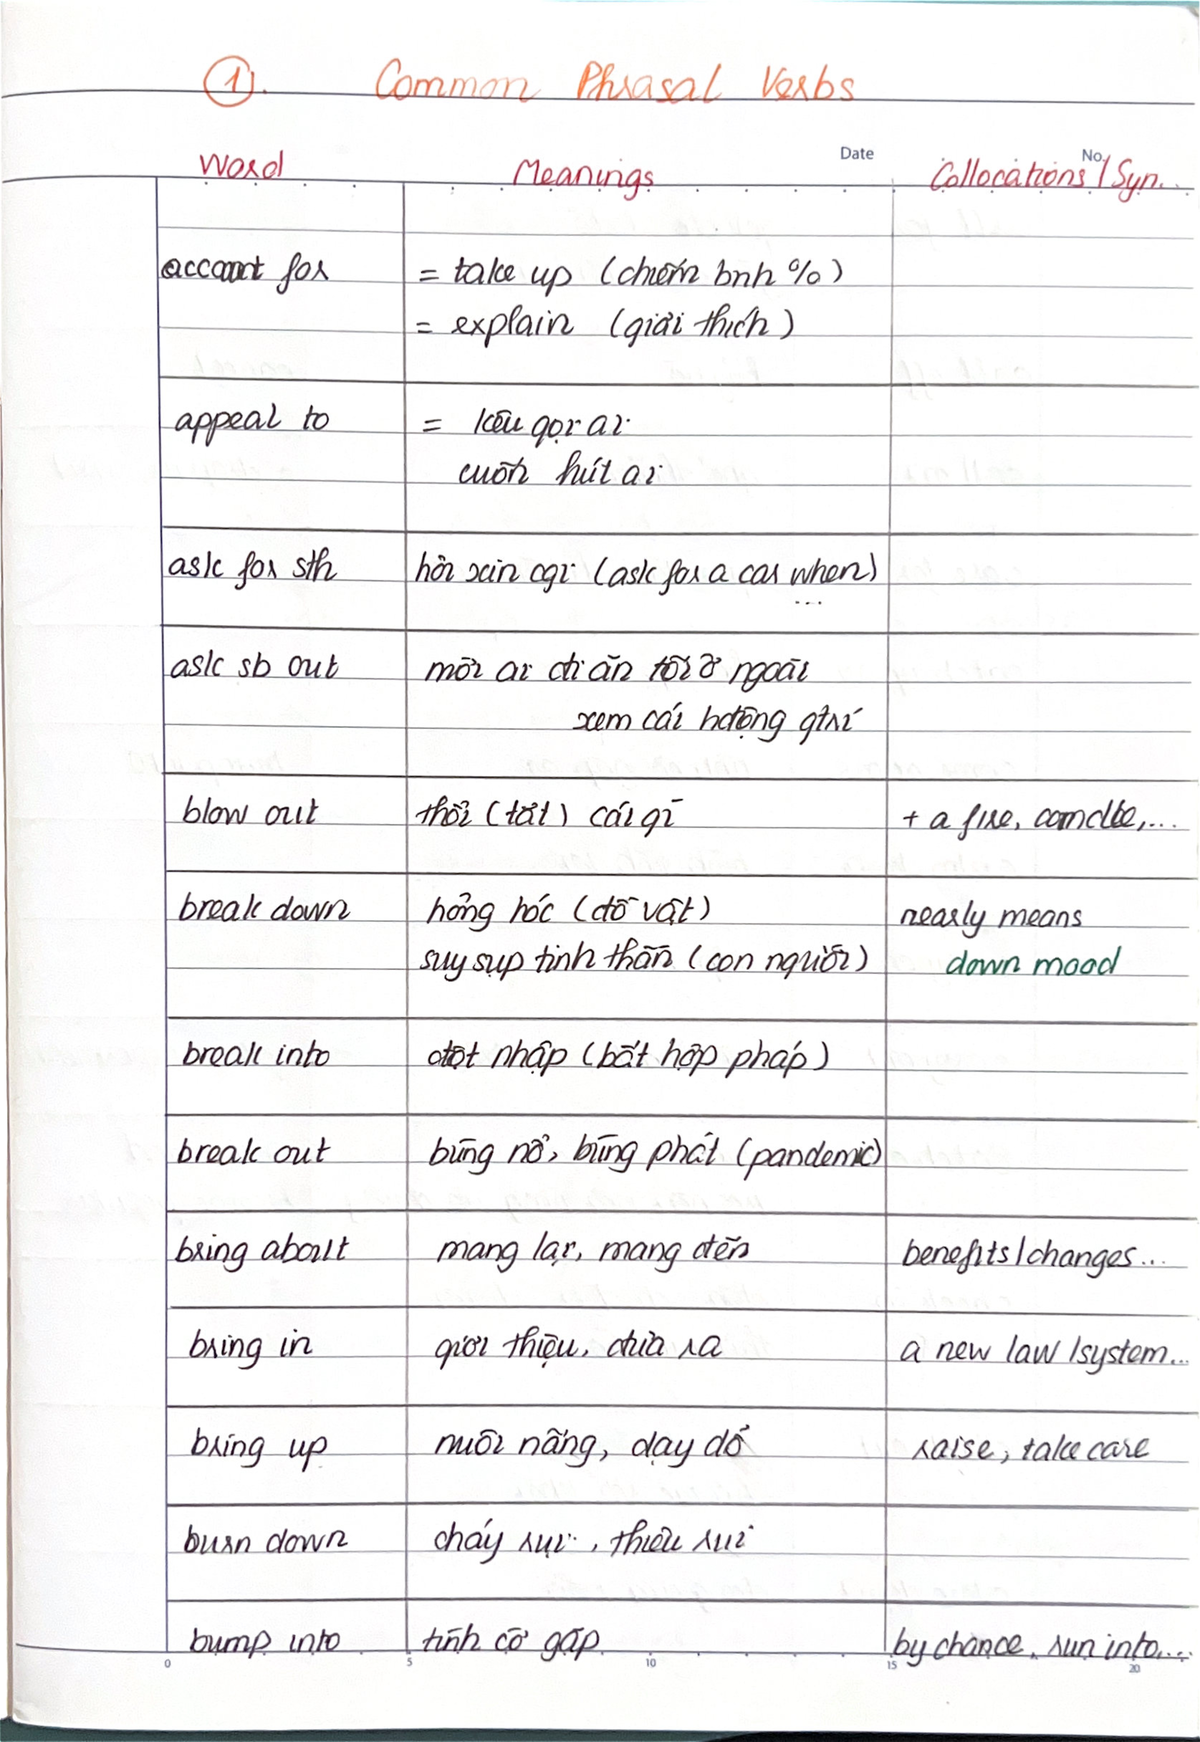 1. Common Phrasal Verbs
Date No.
Word Meanings Collocations / Syn...
account for = take up (chiếm bnh %)
= explain (giải thích)
appeal to = kêu gọi ai
cuốn hút ai
ask for sth hỏi xin cgì (ask for a car when)
...
ask sb out mời ai đi ăn tối ở ngoài
xem cái hoặc động
blow out thổi (tắt) cái gì + a fire, candle,...
break down hỏng hóc (đồ vật) nearly means
suy sụp tinh thần (con người) down mood
break into đột nhập (bất hợp pháp)
break out bùng nổ, bùng phát (pandemic)
bring about mang lại, mang đến benefits/changes...
bring in giới thiệu, đưa ra a new law /system...
bring up nuôi nấng, dạy dỗ raise, take care
burn down cháy rụi, thiêu rụi
bump into tình cờ gặp by chance, run into...
0 5 10 15 20